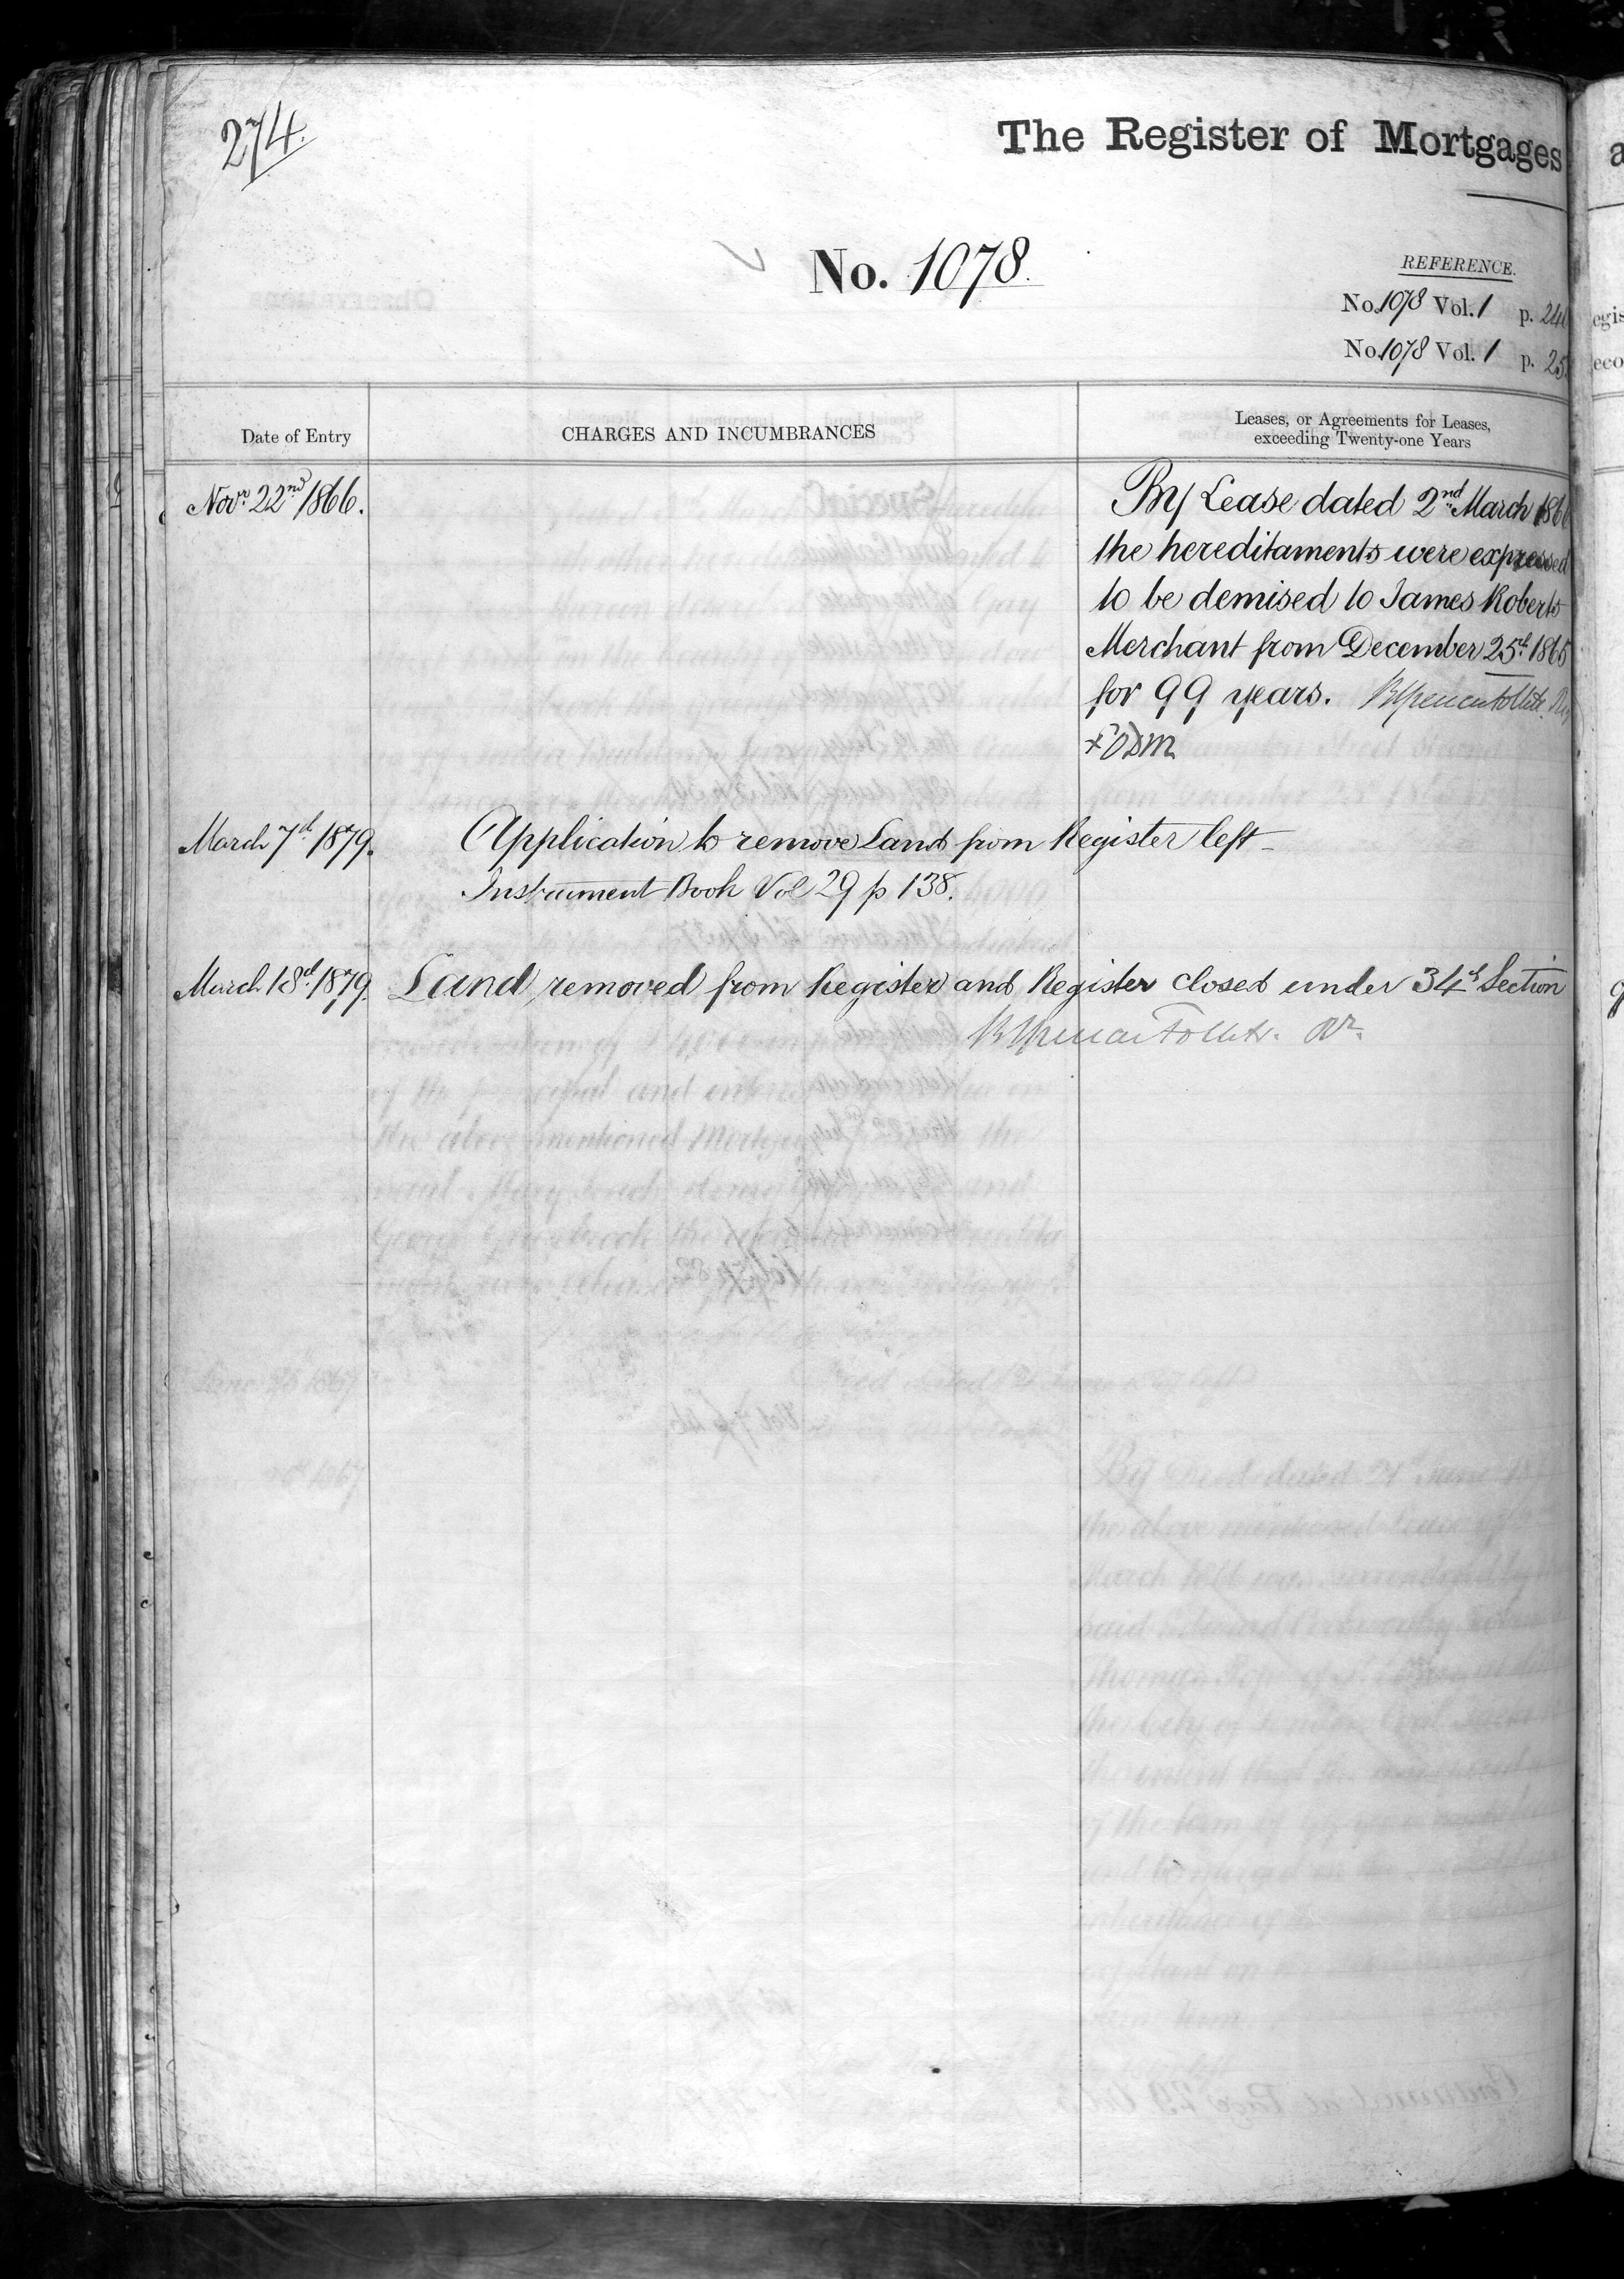 274.
The Register of Mortgages
No. 1078.
REFERENCE.
No. 1078 Vol. 1 p. 24
No. 1078 Vol. 1 p. 25
Date of Entry
CHARGES AND INCUMBRANCES
Leases, or Agreements for Leases,
exceeding Twenty-one Years
Novr. 22nd 1866.
By Lease dated 2nd March 186
the hereditaments were expressed
to be demised to James Roberts
Merchant from December 25th 1865
for 99 years.
March 7th 1879.
Application to remove Land from Register left
Instrument Book Vol 29 p 138.
March 18th 1879.
Land removed from Register and Register closed under 34th Section